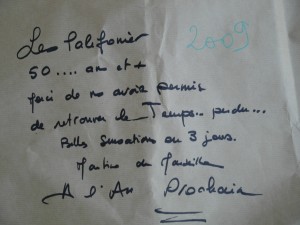 Les Californies
2009
50 .... ans et +
Merci de nous avoir permis
de retrouver le Temps.. perdu...
Belles Sensations en 3 jours.
Martine de Marseille
A l'An Prochain